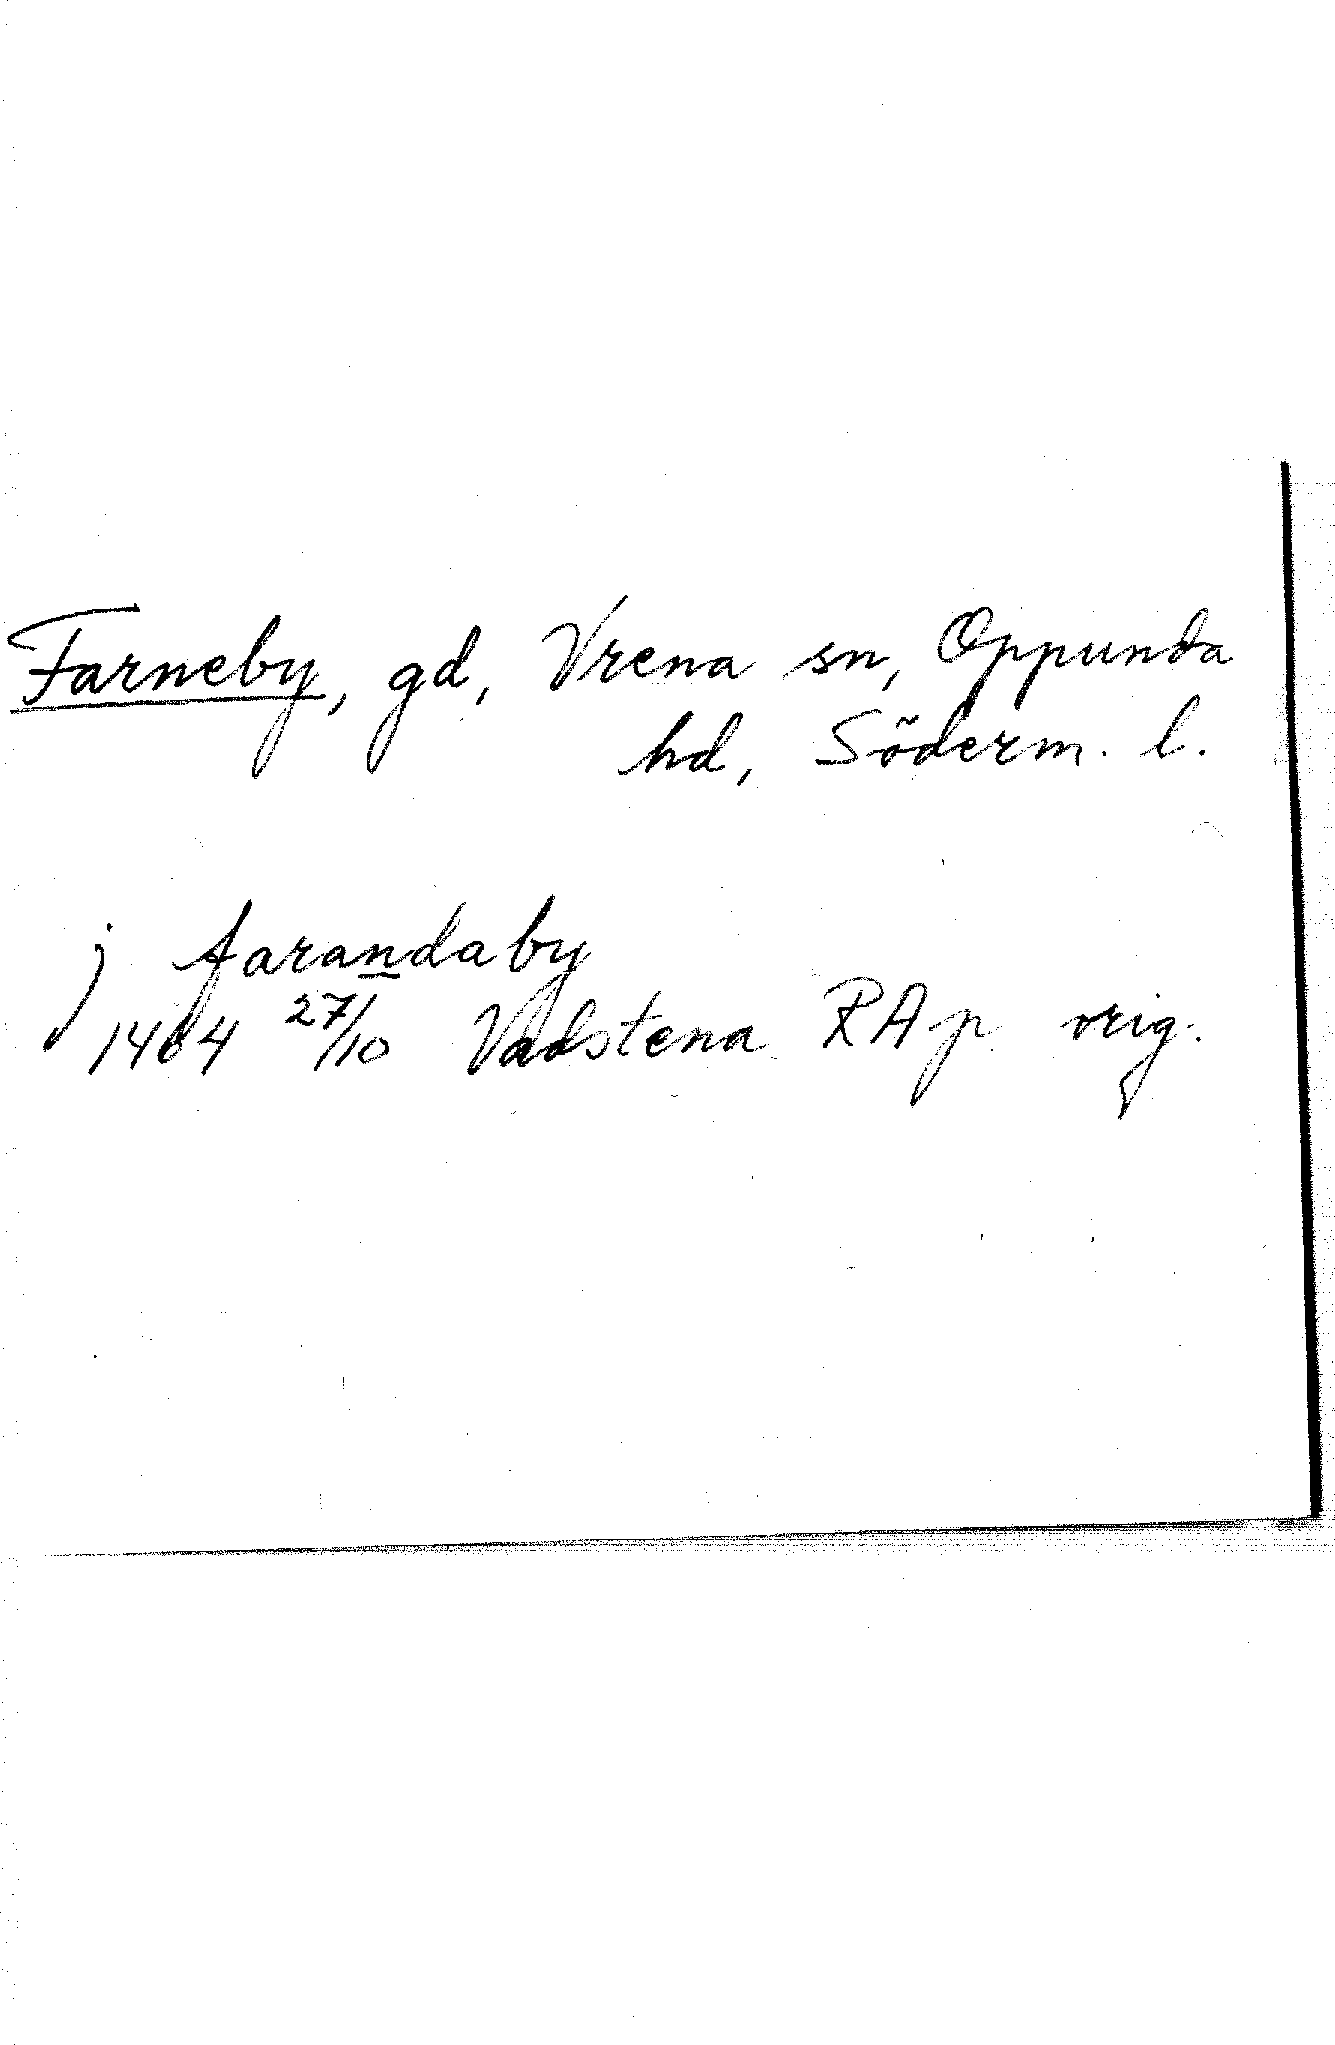 Farneby, gd, Vrena sn, Oppunda
hd, Söderm. l.
j farandaby
1464 27/10 Vadstena RAp orig.